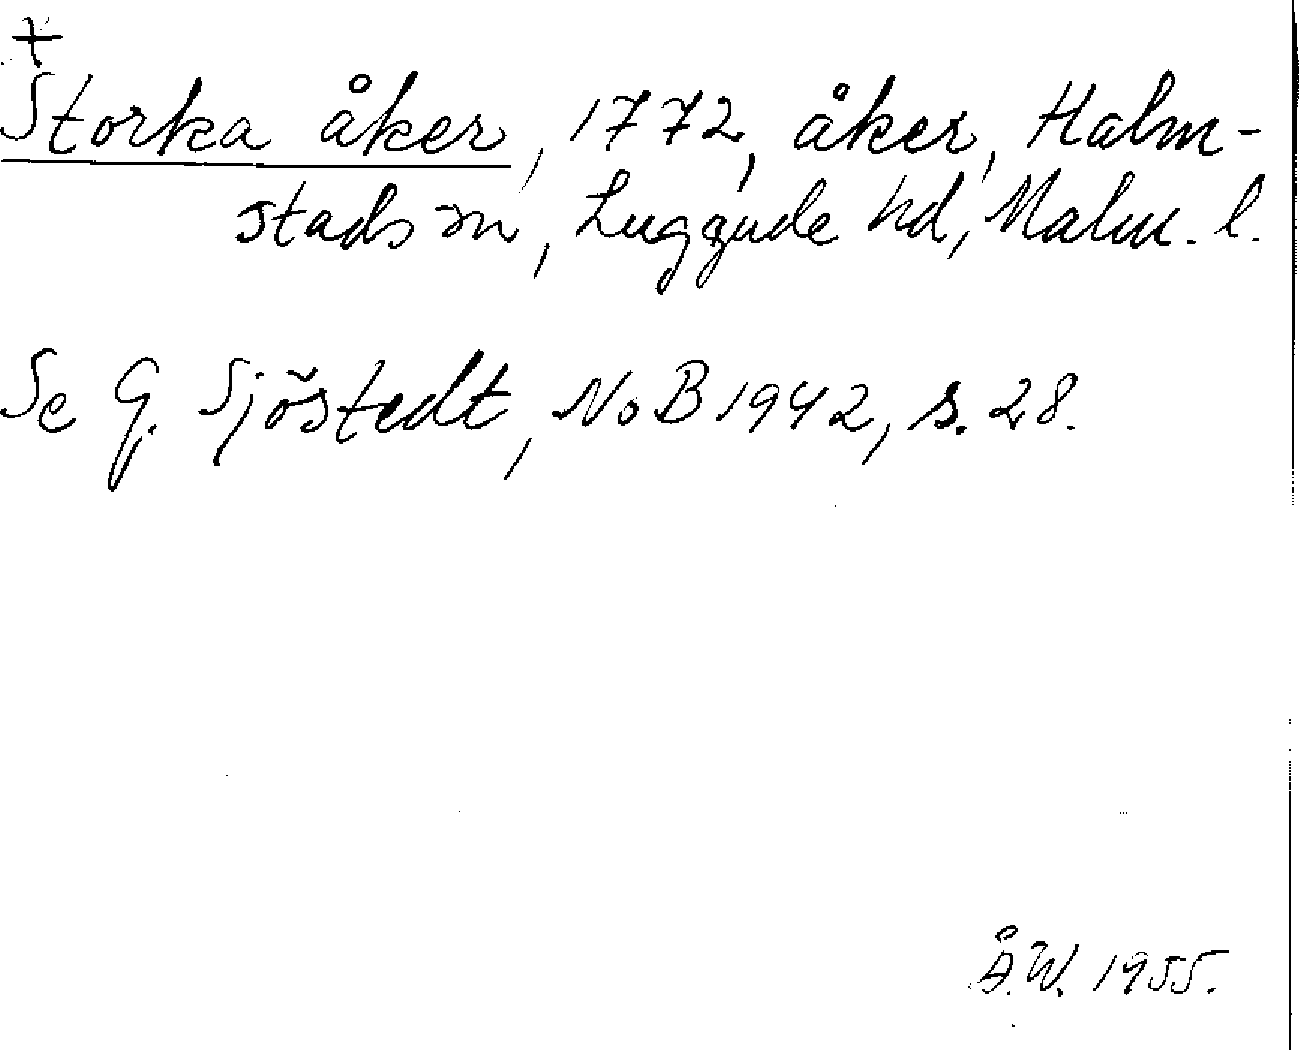 +
Storka åker, 1772, åker, Halm-
stads sn, Luggude hd, Malm. l.
Se G. Sjöstedt, NoB 1942, s. 28.
Å.W. 1955.